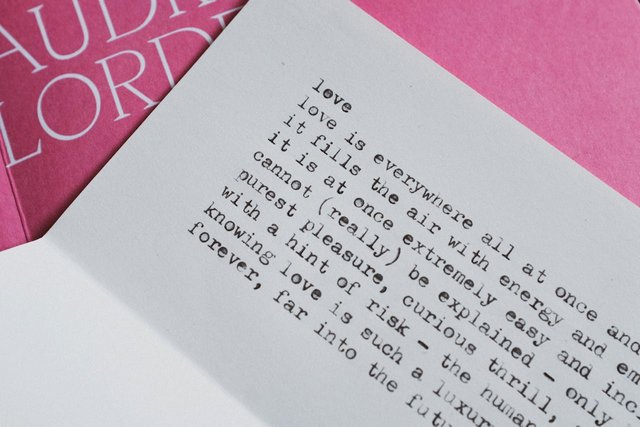 AUDR
LORDE
love
love is everywhere all at once and
it fills the air with energy and em
it is at once extremely easy and inc
cannot (really) be explained — only
purest pleasure, curious thrill,
with a hint of risk — the human
knowing love is such a luxury
forever, far into the futu